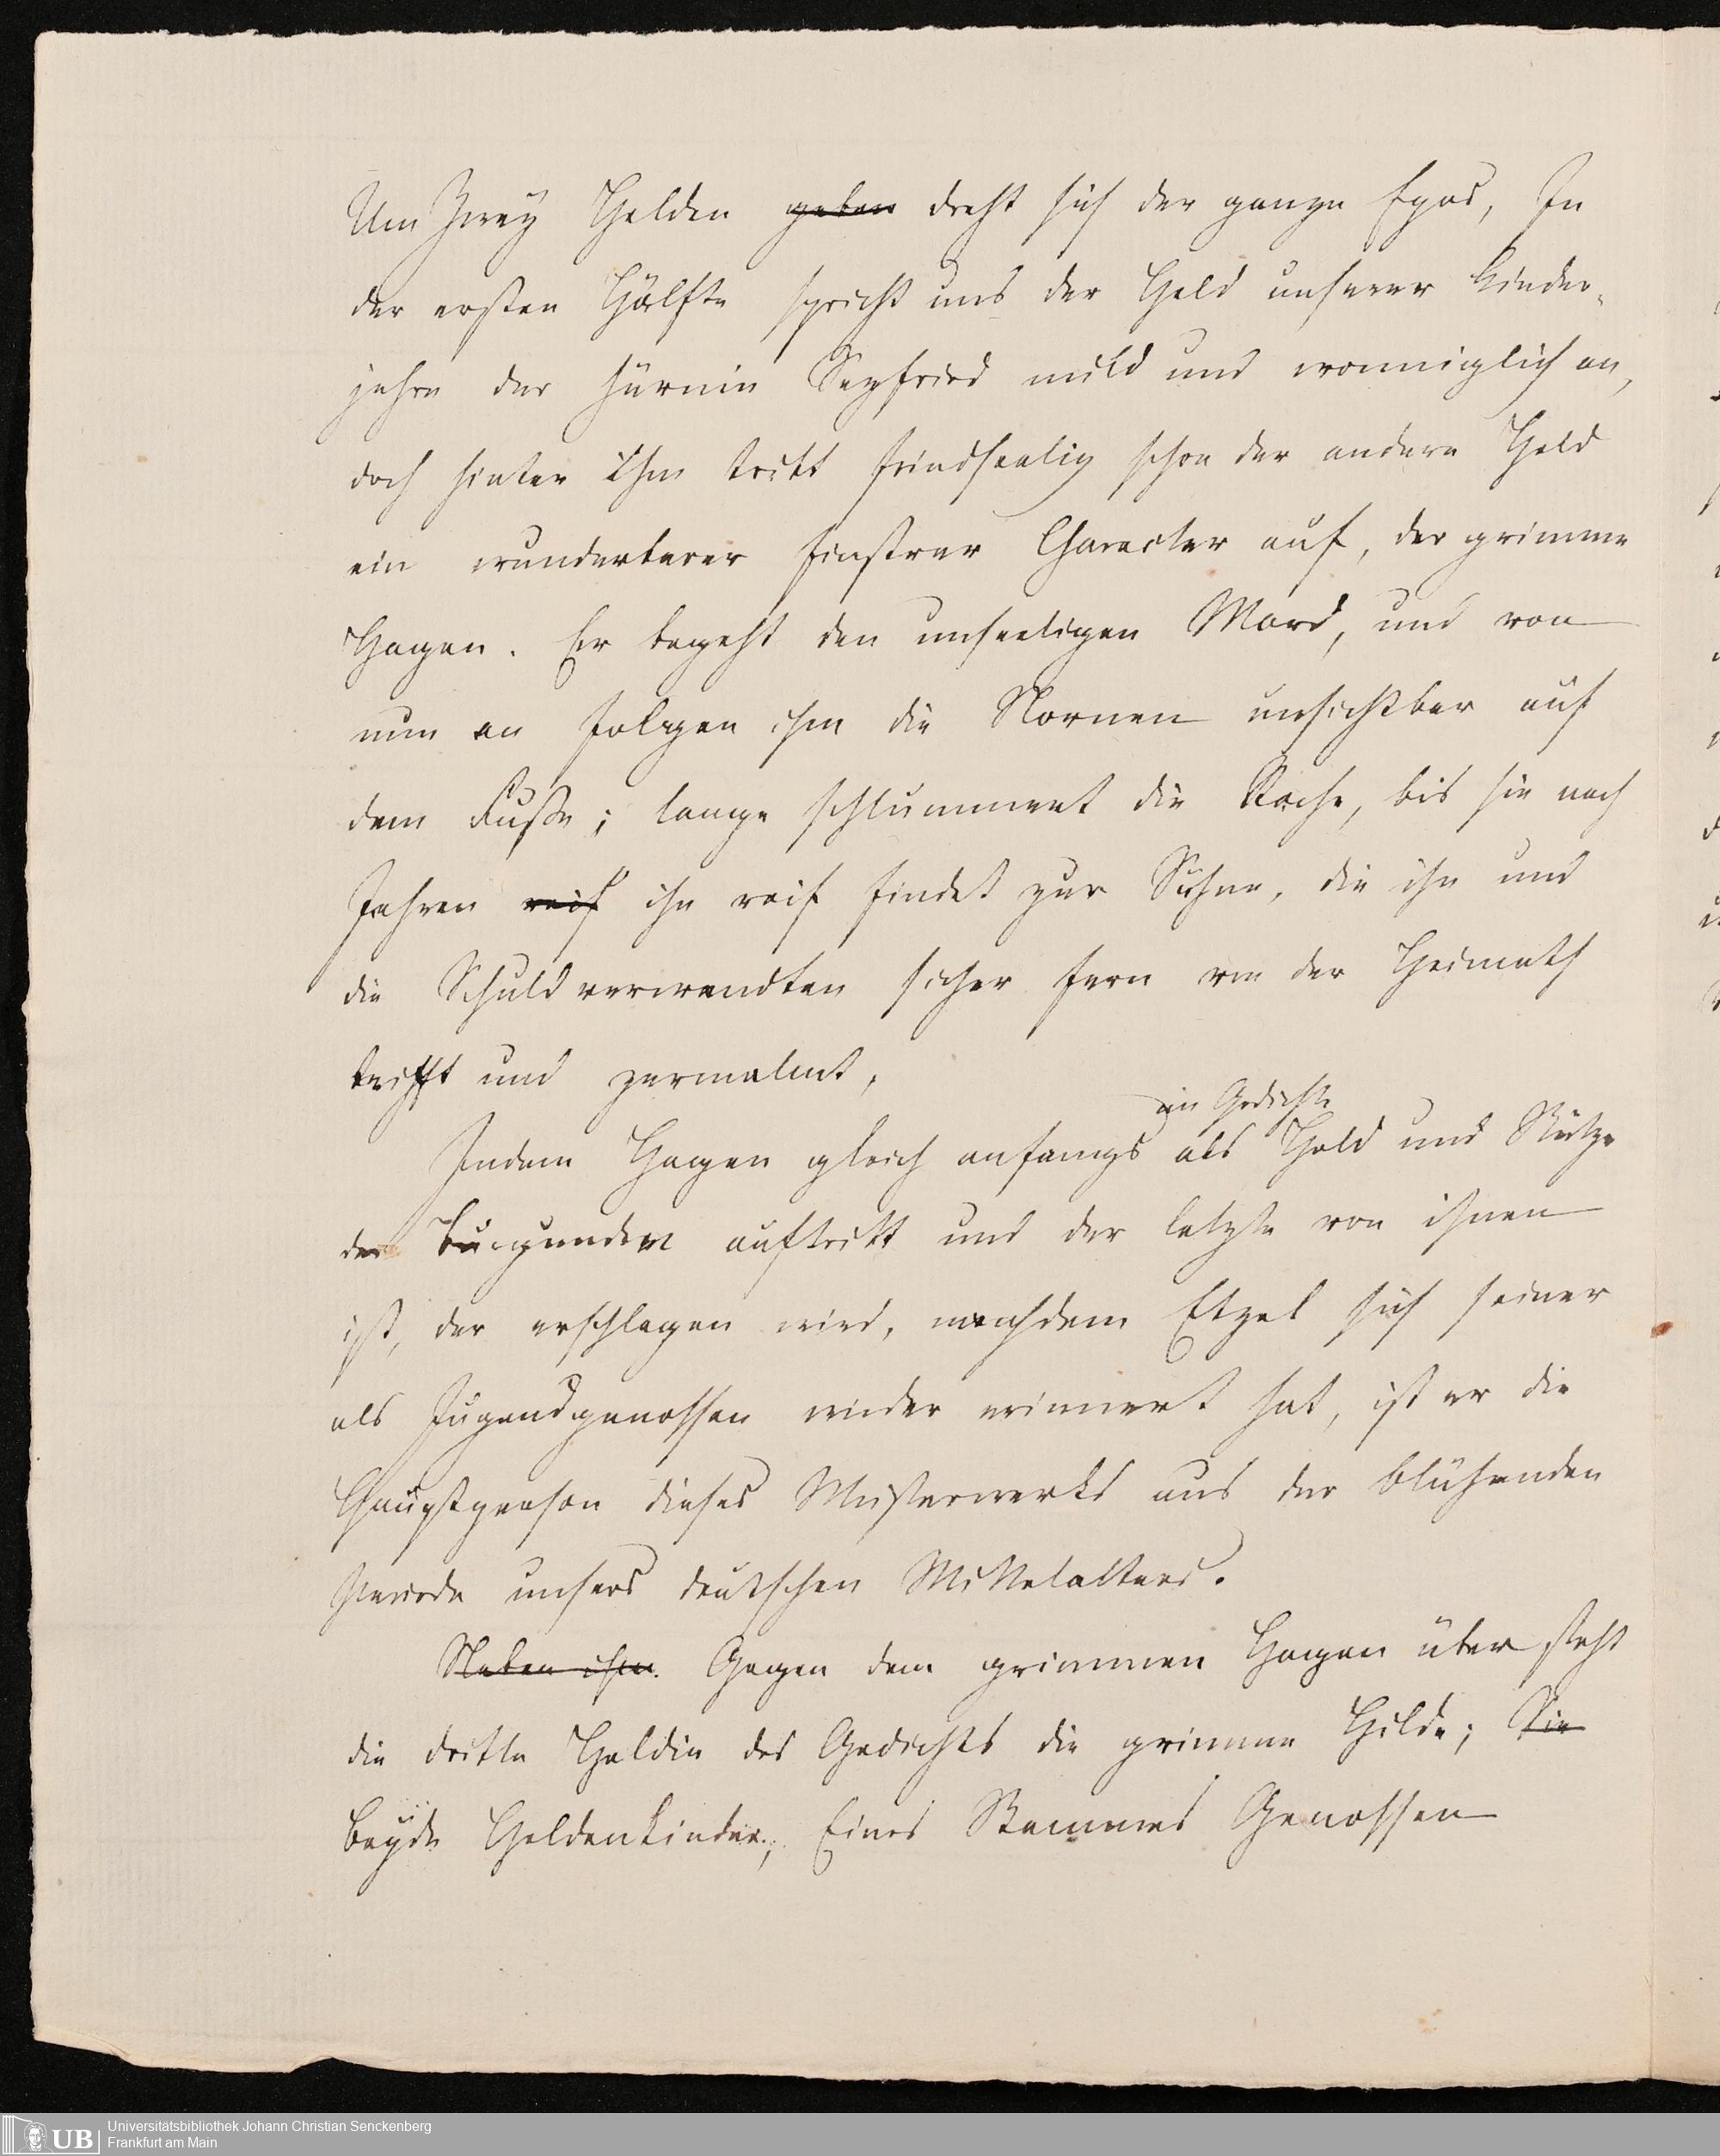 Um Zwey Helden geben dreht sich der ganze Epos, In
der ersten Hälfte spricht uns der Held unserer Kinder-
jahre der hürnin Seyfried mild und wonniglich an,
doch hinter ihm tritt feindseelig schon der andere Held
ein wunderbarer finstrer Character auf, der grimme
Hagen. Er begeht den unseeligen Mord, und von
nun an folgen ihm die Nornen unsichtbar auf
dem Fuße; lange schlummert die Rache, bis sie nach
Jahren reif ihn reif findet zur Sühne, die ihn und
die Schuldverwandten sicher fern von der Heimath
trifft und zermalmt,
im Gedichte
Indem Hagen gleich anfangs als Held und Stütze
der Burgunder auftritt und der letzte von ihnen
ist, der erschlagen wird, nachdem Etzel sich seiner
als Jugendgenossen wieder erinnert hat, ist er die
Hauptperson dieses Meisterwerks aus der blühenden
Periode unsers deutschen Mittelalters.
Neben ihm. Gegen dem grimmen Hagen über steht
die dritte Heldin des Gedichts die grimme Hilde; Sie
beyde Heldenkinder, Eines Stammes Genossen
UB Universitätsbibliothek Johann Christian Senckenberg
Frankfurt am Main